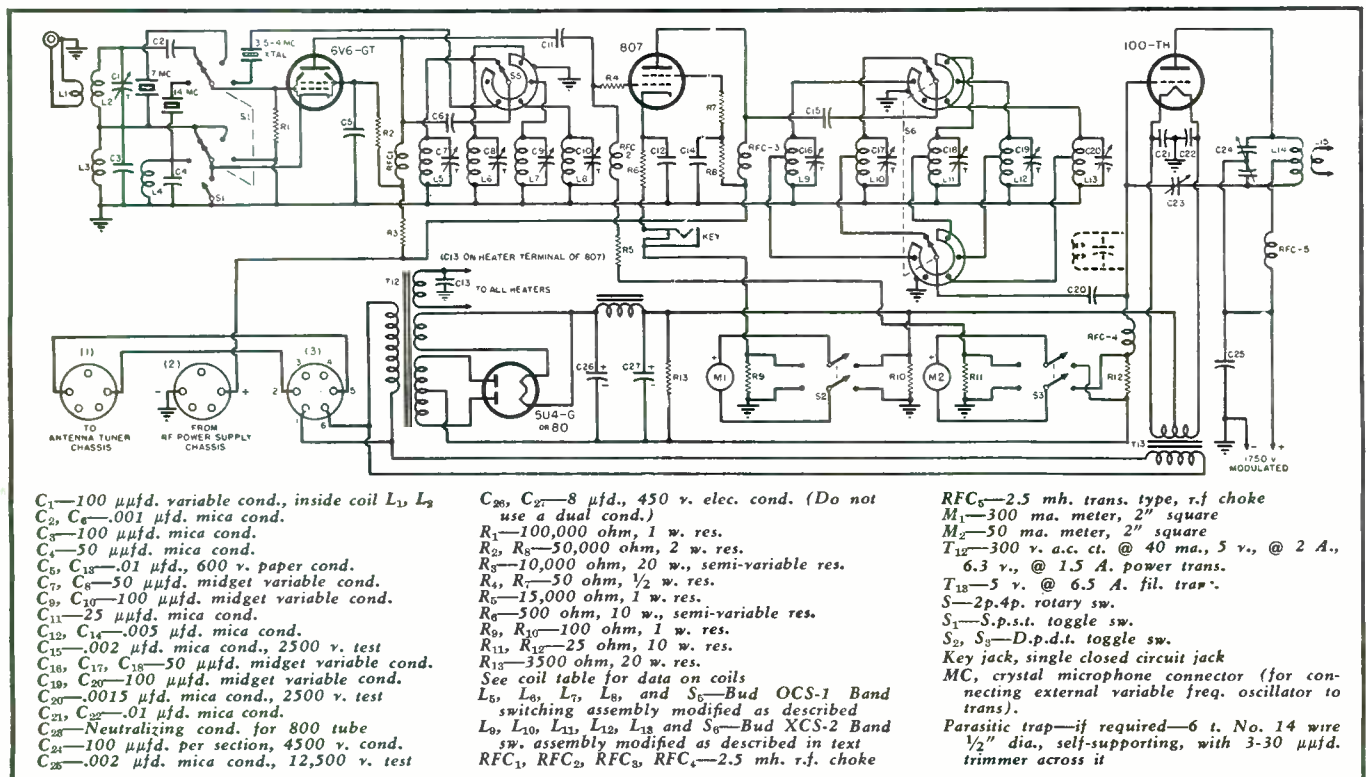 C2
3.5-4 MC
XTAL
6V6-GT
C11
807
100-TH
L1
L2
C1
7 MC
14 MC
S1
R1
C5
R2
RFC1
C6
S5
R4
R7
C15
S6
L3
C3
L4
C4
S1
C7
L5
C8
L6
C9
L7
C10
L8
RFC 2
R6
C12
C14
R8
RFC-3
C16
L9
C17
L10
C18
L11
C19
L12
C20
L13
C21
C22
C23
C24
L14
L15
R3
R5
KEY
RFC-5
(C13 ON HEATER TERMINAL OF 807)
T12
C13
TO ALL HEATERS
C20
RFC-4
(1)
(2)
(3)
3
4
2
5
1
6
-
+
5U4-G
OR 80
C26
C27
R13
M1
R9
S2
R10
M2
R11
S3
R12
T13
C25
TO
ANTENNA TUNER
CHASSIS
FROM
RF POWER SUPPLY
CHASSIS
- +
1750 V
MODULATED
C1—100 μμfd. variable cond., inside coil L1, L2
C2, C6—.001 μfd. mica cond.
C3—100 μμfd. mica cond.
C4—50 μμfd. mica cond.
C5, C13—.01 μfd., 600 v. paper cond.
C7, C8—50 μμfd. midget variable cond.
C9, C10—100 μμfd. midget variable cond.
C11—25 μμfd. mica cond.
C12, C14—.005 μfd. mica cond.
C15—.002 μfd. mica cond., 2500 v. test
C16, C17, C18—50 μμfd. midget variable cond.
C19, C20—100 μμfd. midget variable cond.
C20—.0015 μfd. mica cond., 2500 v. test
C21, C22—.01 μfd. mica cond.
C23—Neutralizing cond. for 800 tube
C24—100 μμfd. per section, 4500 v. cond.
C25—.002 μfd. mica cond., 12,500 v. test
C26, C27—8 μfd., 450 v. elec. cond. (Do not
use a dual cond.)
R1—100,000 ohm, 1 w. res.
R2, R8—50,000 ohm, 2 w. res.
R3—10,000 ohm, 20 w., semi-variable res.
R4, R7—50 ohm, ½ w. res.
R5—15,000 ohm, 1 w. res.
R6—500 ohm, 10 w., semi-variable res.
R9, R10—100 ohm, 1 w. res.
R11, R12—25 ohm, 10 w. res.
R13—3500 ohm, 20 w. res.
See coil table for data on coils
L5, L6, L7, L8, and S5—Bud OCS-1 Band
switching assembly modified as described
L9, L10, L11, L12, L13 and S6—Bud XCS-2 Band
sw. assembly modified as described in text
RFC1, RFC2, RFC3, RFC4—2.5 mh. r.f. choke
RFC5—2.5 mh. trans. type, r.f choke
M1—300 ma. meter, 2" square
M2—50 ma. meter, 2" square
T12—300 v. a.c. ct. @ 40 ma., 5 v., @ 2 A.,
6.3 v., @ 1.5 A. power trans.
T13—5 v. @ 6.5 A. fil. trans.
S—2p.4p. rotary sw.
S1—S.p.s.t. toggle sw.
S2, S3—D.p.d.t. toggle sw.
Key jack, single closed circuit jack
MC, crystal microphone connector (for con-
necting external variable freq. oscillator to
trans).
Parasitic trap—if required—6 t. No. 14 wire
½" dia., self-supporting, with 3-30 μμfd.
trimmer across it